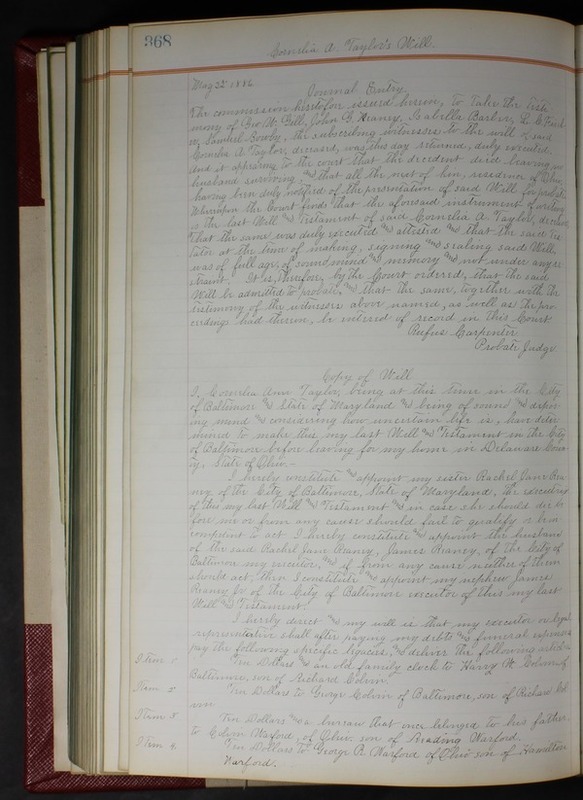 368
Cornelia A. Taylor's Will.
May 22 1886
Journal Entry
The commission heretofore issued herein, to take the testi
mony of Geo. W. Gill, John G. Heaney, Isabella Barber, L. C.
Samuel Gowby, the subscribing witnesses to the will of said
Cornelia A. Taylor, deceased, was this day returned, duly executed.
And it appearing to the court that the decedent died leaving no
husband surviving and that all the next of kin, residents of Ohio
having been duly notified of the presentation of said Will for probate
Whereupon the Court finds that the aforesaid instrument of writing
is the last Will and Testament of said Cornelia A. Taylor, deceased
that the same was duly executed and attested and that the said Tes
tator at the time of making, signing and sealing said Will,
was of full age, of sound mind and memory and not under any re
straint. It is, therefore, by the Court ordered, that the said
Will be admitted to probate, and that the same, together with the
testimony of the witnesses above named, as well as the pro
ceedings had thereon, be entered of record in this Court.
Rufus Carpenter
Probate Judge
Copy of Will
I, Cornelia Ann Taylor, being at this time in the City
of Baltimore and State of Maryland and being of sound and dispos
ing mind and considering how uncertain life is, have deter
mined to make this my last Will and Testament in the City
of Baltimore before leaving for my home in Delaware Coun
ty, State of Ohio.-
I hereby constitute and appoint my sister Rachel Jane Rea
ney, of the City of Baltimore, State of Maryland, the executrix
of this my last Will and Testament and in case she should die be
fore me or from any cause should fail to qualify or be in
competent to act I hereby constitute and appoint the husband
of the said Rachel Jane Reaney, James Reaney, of the City of
Baltimore my executor, and if from any cause neither of them
should act, then I constitute and appoint my nephew James
Reaney Jr of the City of Baltimore executor of this my last
Will and Testament.
I hereby direct and my will is that my executor or legal
representative shall after paying my debts and funeral expenses
pay the following specific legacies, and deliver the following articles
Item 1 Ten Dollars and an old family clock to Harry W. Colvin of
Baltimore, son of Richard Colvin.
Item 2 Ten Dollars to George Colvin of Baltimore, son of Richard Col
vin.
Item 3 Ten Dollars and a bureau that once belonged to his father
to Edwin Warford, of Ohio, son of Reading Warford.
Item 4. Ten Dollars to George R. Warford of Ohio son of Hamilton
Warford.